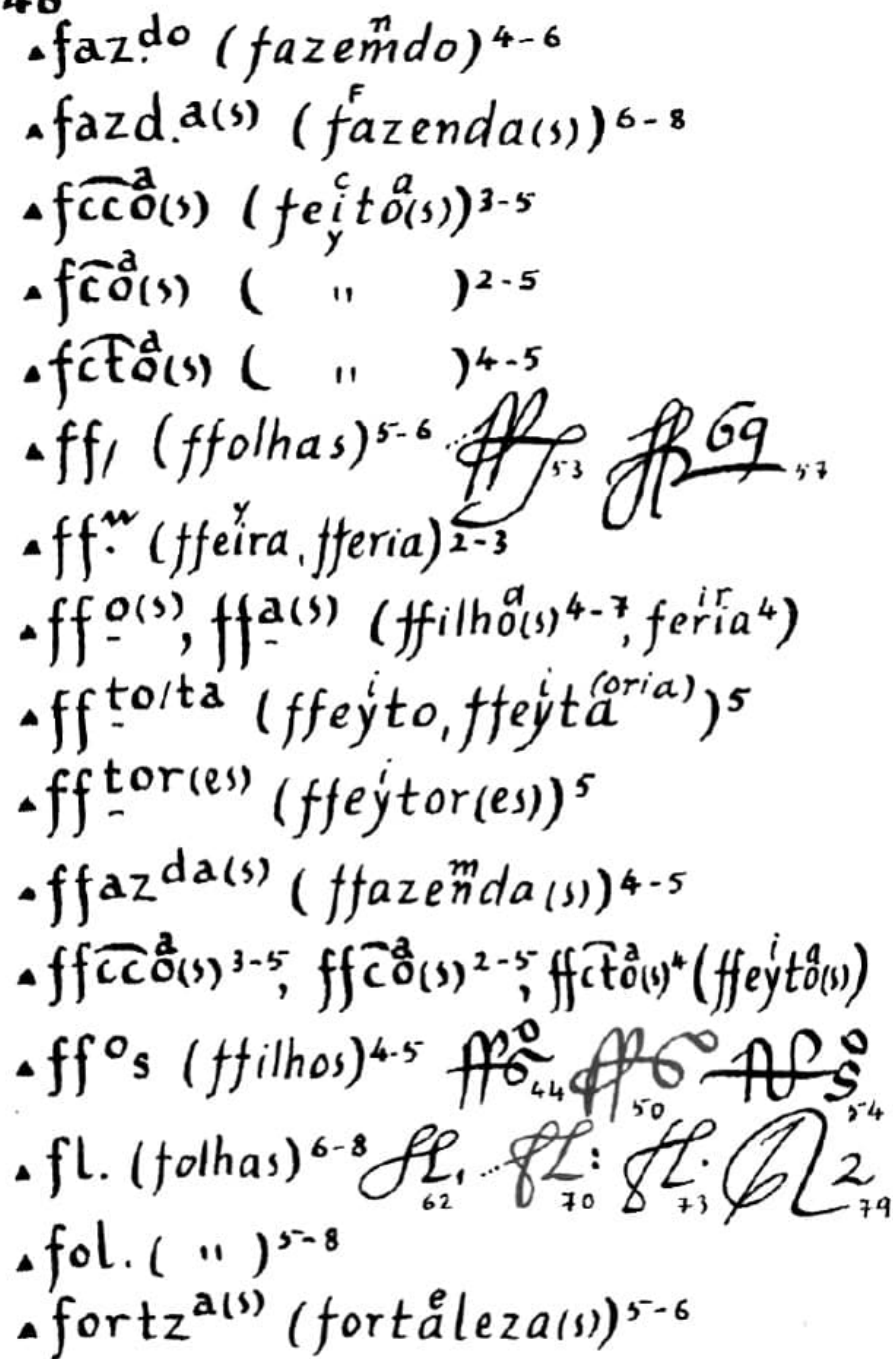 ▲faz.do (fazemndo)4-6
▲fazd.a(s) (fFazenda(s))6-8
▲fccoa(s) (feiyctoa(s))3-5
▲fcoa(s) ( " )2-5
▲fctoa(s) ( " )4-5
▲ff, (ffolhas)5-6 ... 53 69 57
▲ff. (ffeiyra, fferia)2-3
▲ffo(s), ffa(s) (ffilhoa(s)4-7, feriira4)
▲ffto/ta (ffeyito, ffeyita(oria))5
▲fftor(es) (ffeyitor(es))5
▲ffazda(s) (ffazenmda(s))4-5
▲ffccoa(s)3-5, ffcoa(s)2-5, ffctoa(s)4 (ffeyitoa(s))
▲ffos (ffilhos)4-5 44 50 54
▲fl. (folhas)6-8 62 ... 70 73 2 79
▲fol. ( " )5-8
▲fortza(s) (fortaeleza(s))5-6